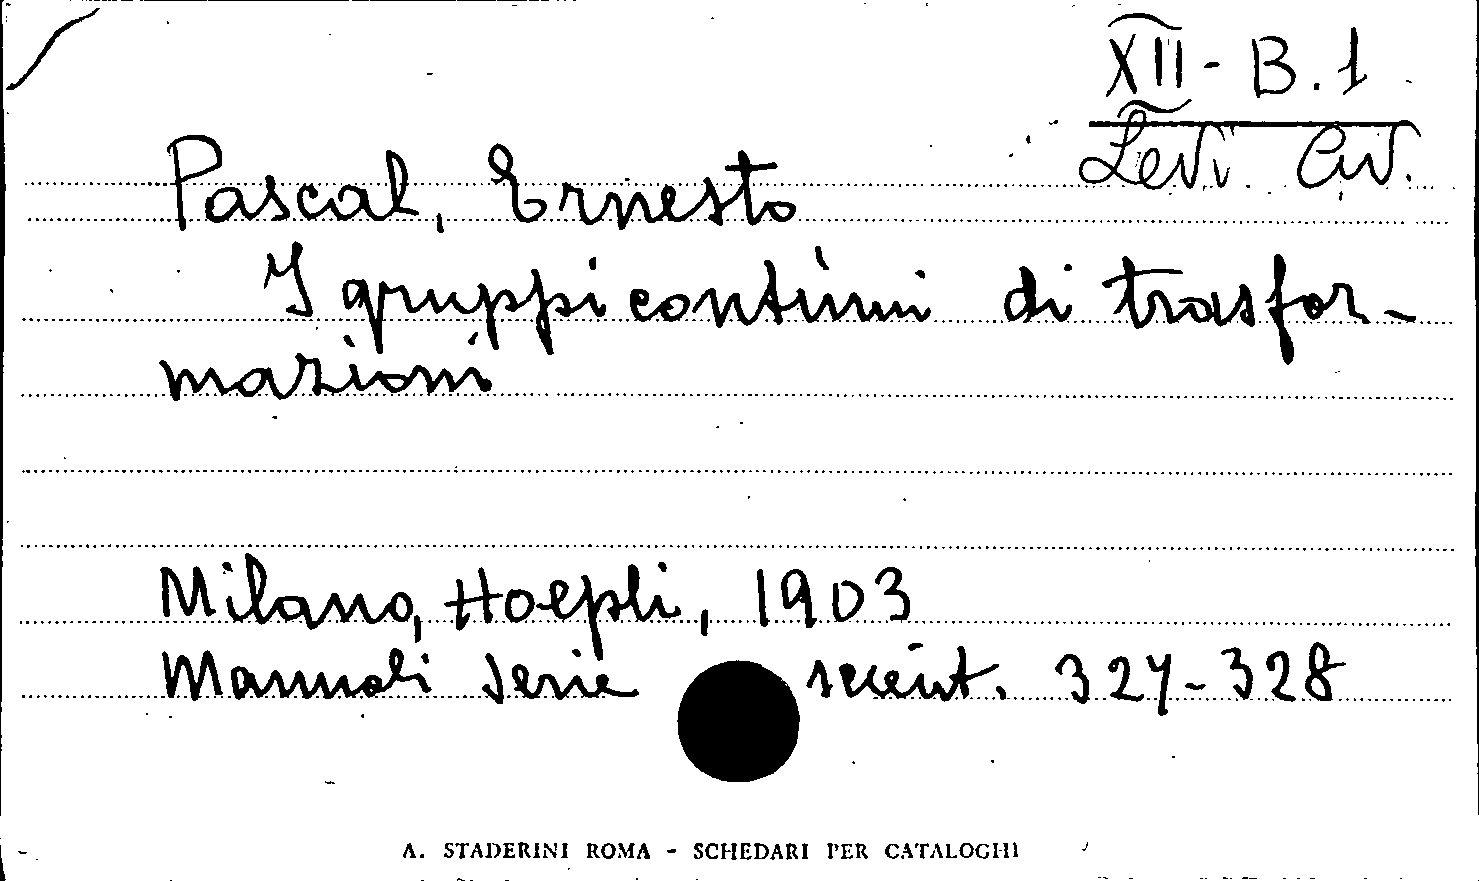 XII - B. 1
Levi Civ.
Pascal, Ernesto
I gruppi continui di trasfor-
mazioni
Milano, Hoepli, 1903
Manuali serie scient. 327-328
A. STADERINI ROMA - SCHEDARI PER CATALOGHI